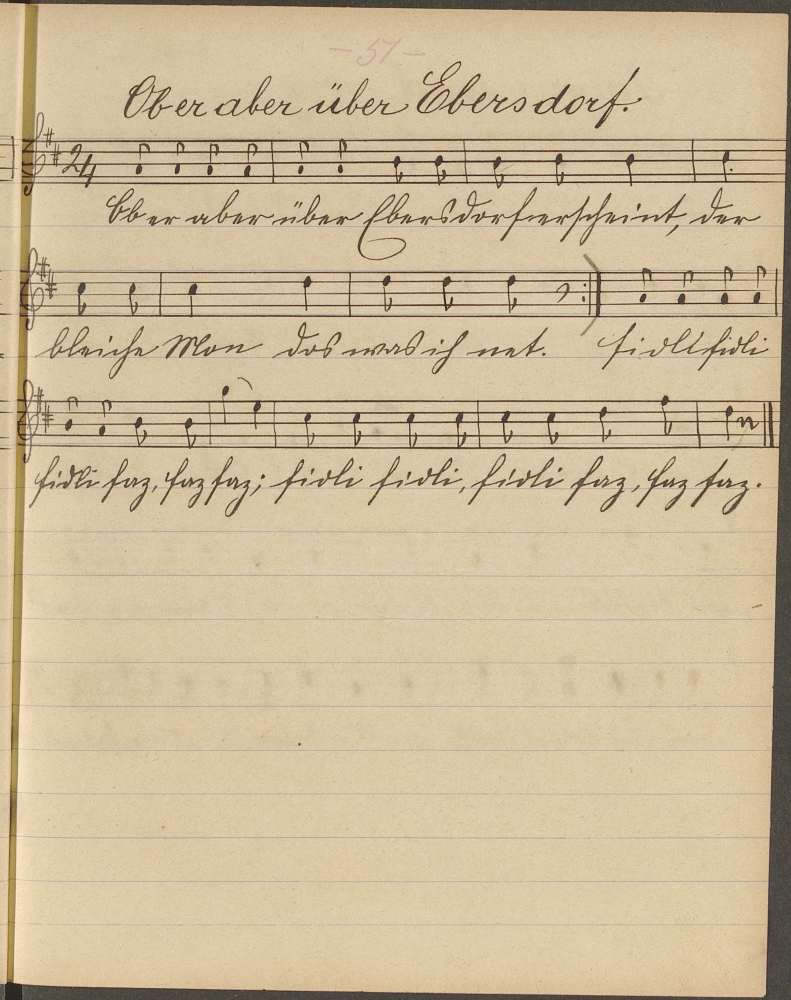 - 51 -
Ob er aber über Ebersdorf.
2/4
Ob er aber über Ebersdorf erscheint, der
bleiche Mon das was ich net. fidli fidli
fidli faz, faz faz; fidli fidli, fidli faz, faz faz.